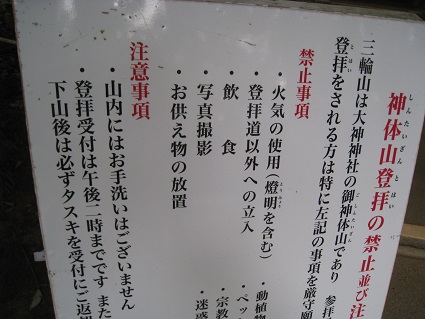 神体山登拝の禁止並び注
しんたいざんとはい
三輪山は大神神社の御神体山であり 参拝
登拝をされる方は特に左記の事項を厳守願
とはい
禁止事項
・火気の使用（燈明を含む）
・登拝道以外への立入
・飲食
・写真撮影
・お供え物の放置
・動植物
・ペット
・宗教
・迷惑
注意事項
・山内にはお手洗いはございません
・登拝受付は午後二時までです また
下山後は必ずタスキを受付にご返